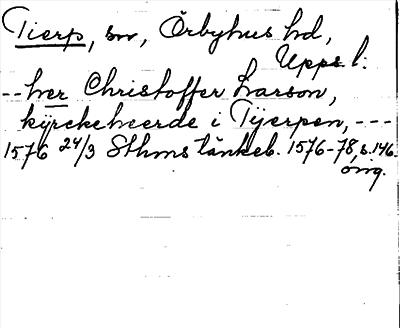 Tierp, sn, Örbyhus hd,
Upps. l.
--her Christoffer Larson,
kÿrckeheerde i Tÿerpen, ---
1576 24/3 Sthms tänkeb. 1576-78, s. 146.
orig.